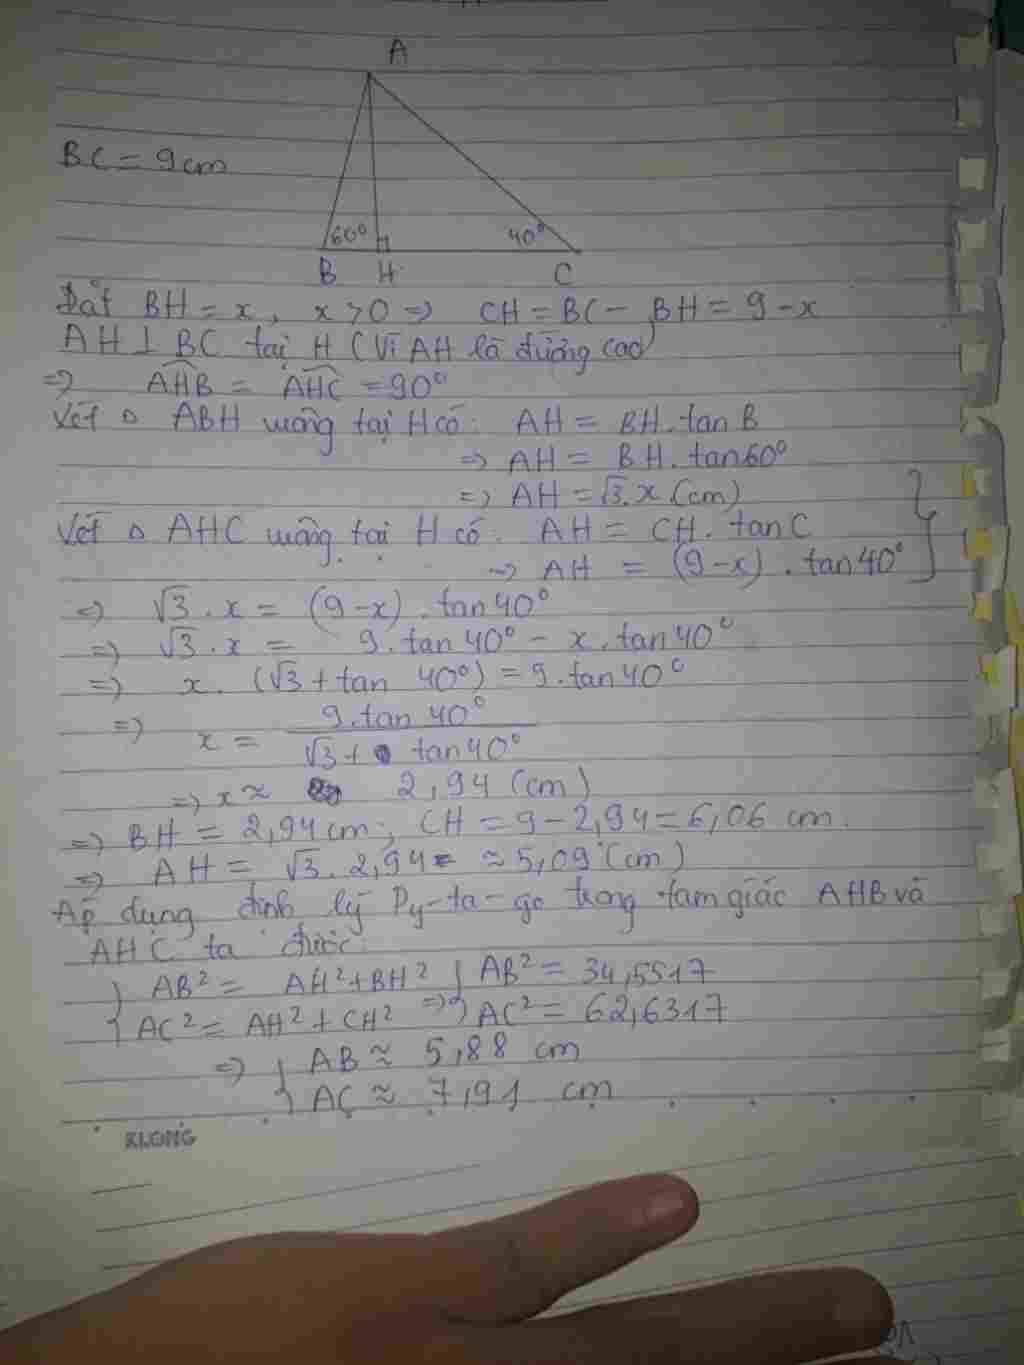 A
BC = 9cm
60° 40°
B H C
Đặt BH = x, x > 0 => CH = BC - BH = 9 - x
AH ⊥ BC tại H (Vì AH là đường cao)
=> \widehat{AHB} = \widehat{AHC} = 90°
Xét Δ ABH vuông tại H có: AH = BH . tan B
=> AH = BH . tan 60°
=> AH = √3 . x (cm)
Xét Δ AHC vuông tại H có: AH = CH . tan C
=> AH = (9-x) . tan 40°
=> √3 . x = (9-x) . tan 40°
=> √3 . x = 9 . tan 40° - x . tan 40°
=> x . (√3 + tan 40°) = 9 . tan 40°
=> x = \frac{9 . tan 40°}{√3 + tan 40°}
=> x ≈ 2,94 (cm)
=> BH = 2,94 cm ; CH = 9 - 2,94 = 6,06 cm.
=> AH = √3 . 2,94 ≈ 5,09 (cm)
Áp dụng định lý Py-ta-go trong tam giác AHB và
AHC ta được:
{ AB² = AH² + BH² { AB² = 34,5517
{ AC² = AH² + CH² => { AC² = 62,6317
=> { AB ≈ 5,88 cm
{ AC ≈ 7,91 cm
KLONG